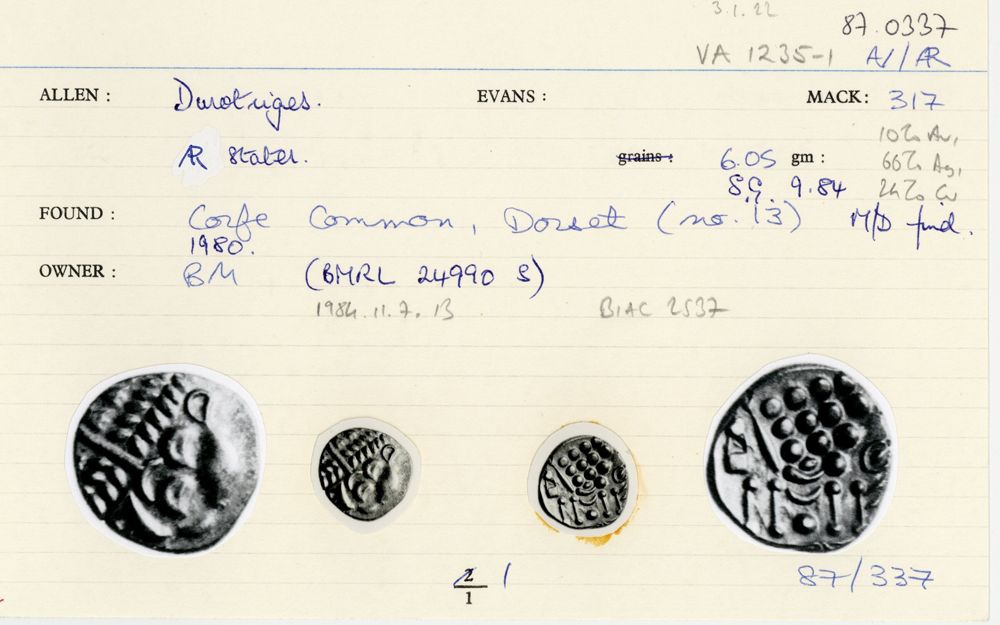 3.1.22
87.0337
VA 1235-1 AV/AR
ALLEN : Durotriges. EVANS : MACK: 317
10% Au,
AR stater. grains : 6.05 gm : 66% Ag,
S.G. 9.84 24% Cu
FOUND : Corfe Common, Dorset (no. 13) M/D find.
1980.
OWNER : BM (BMRL 24990 S)
1984.11.7.13 BIAC 2537
2/1 1
87/337